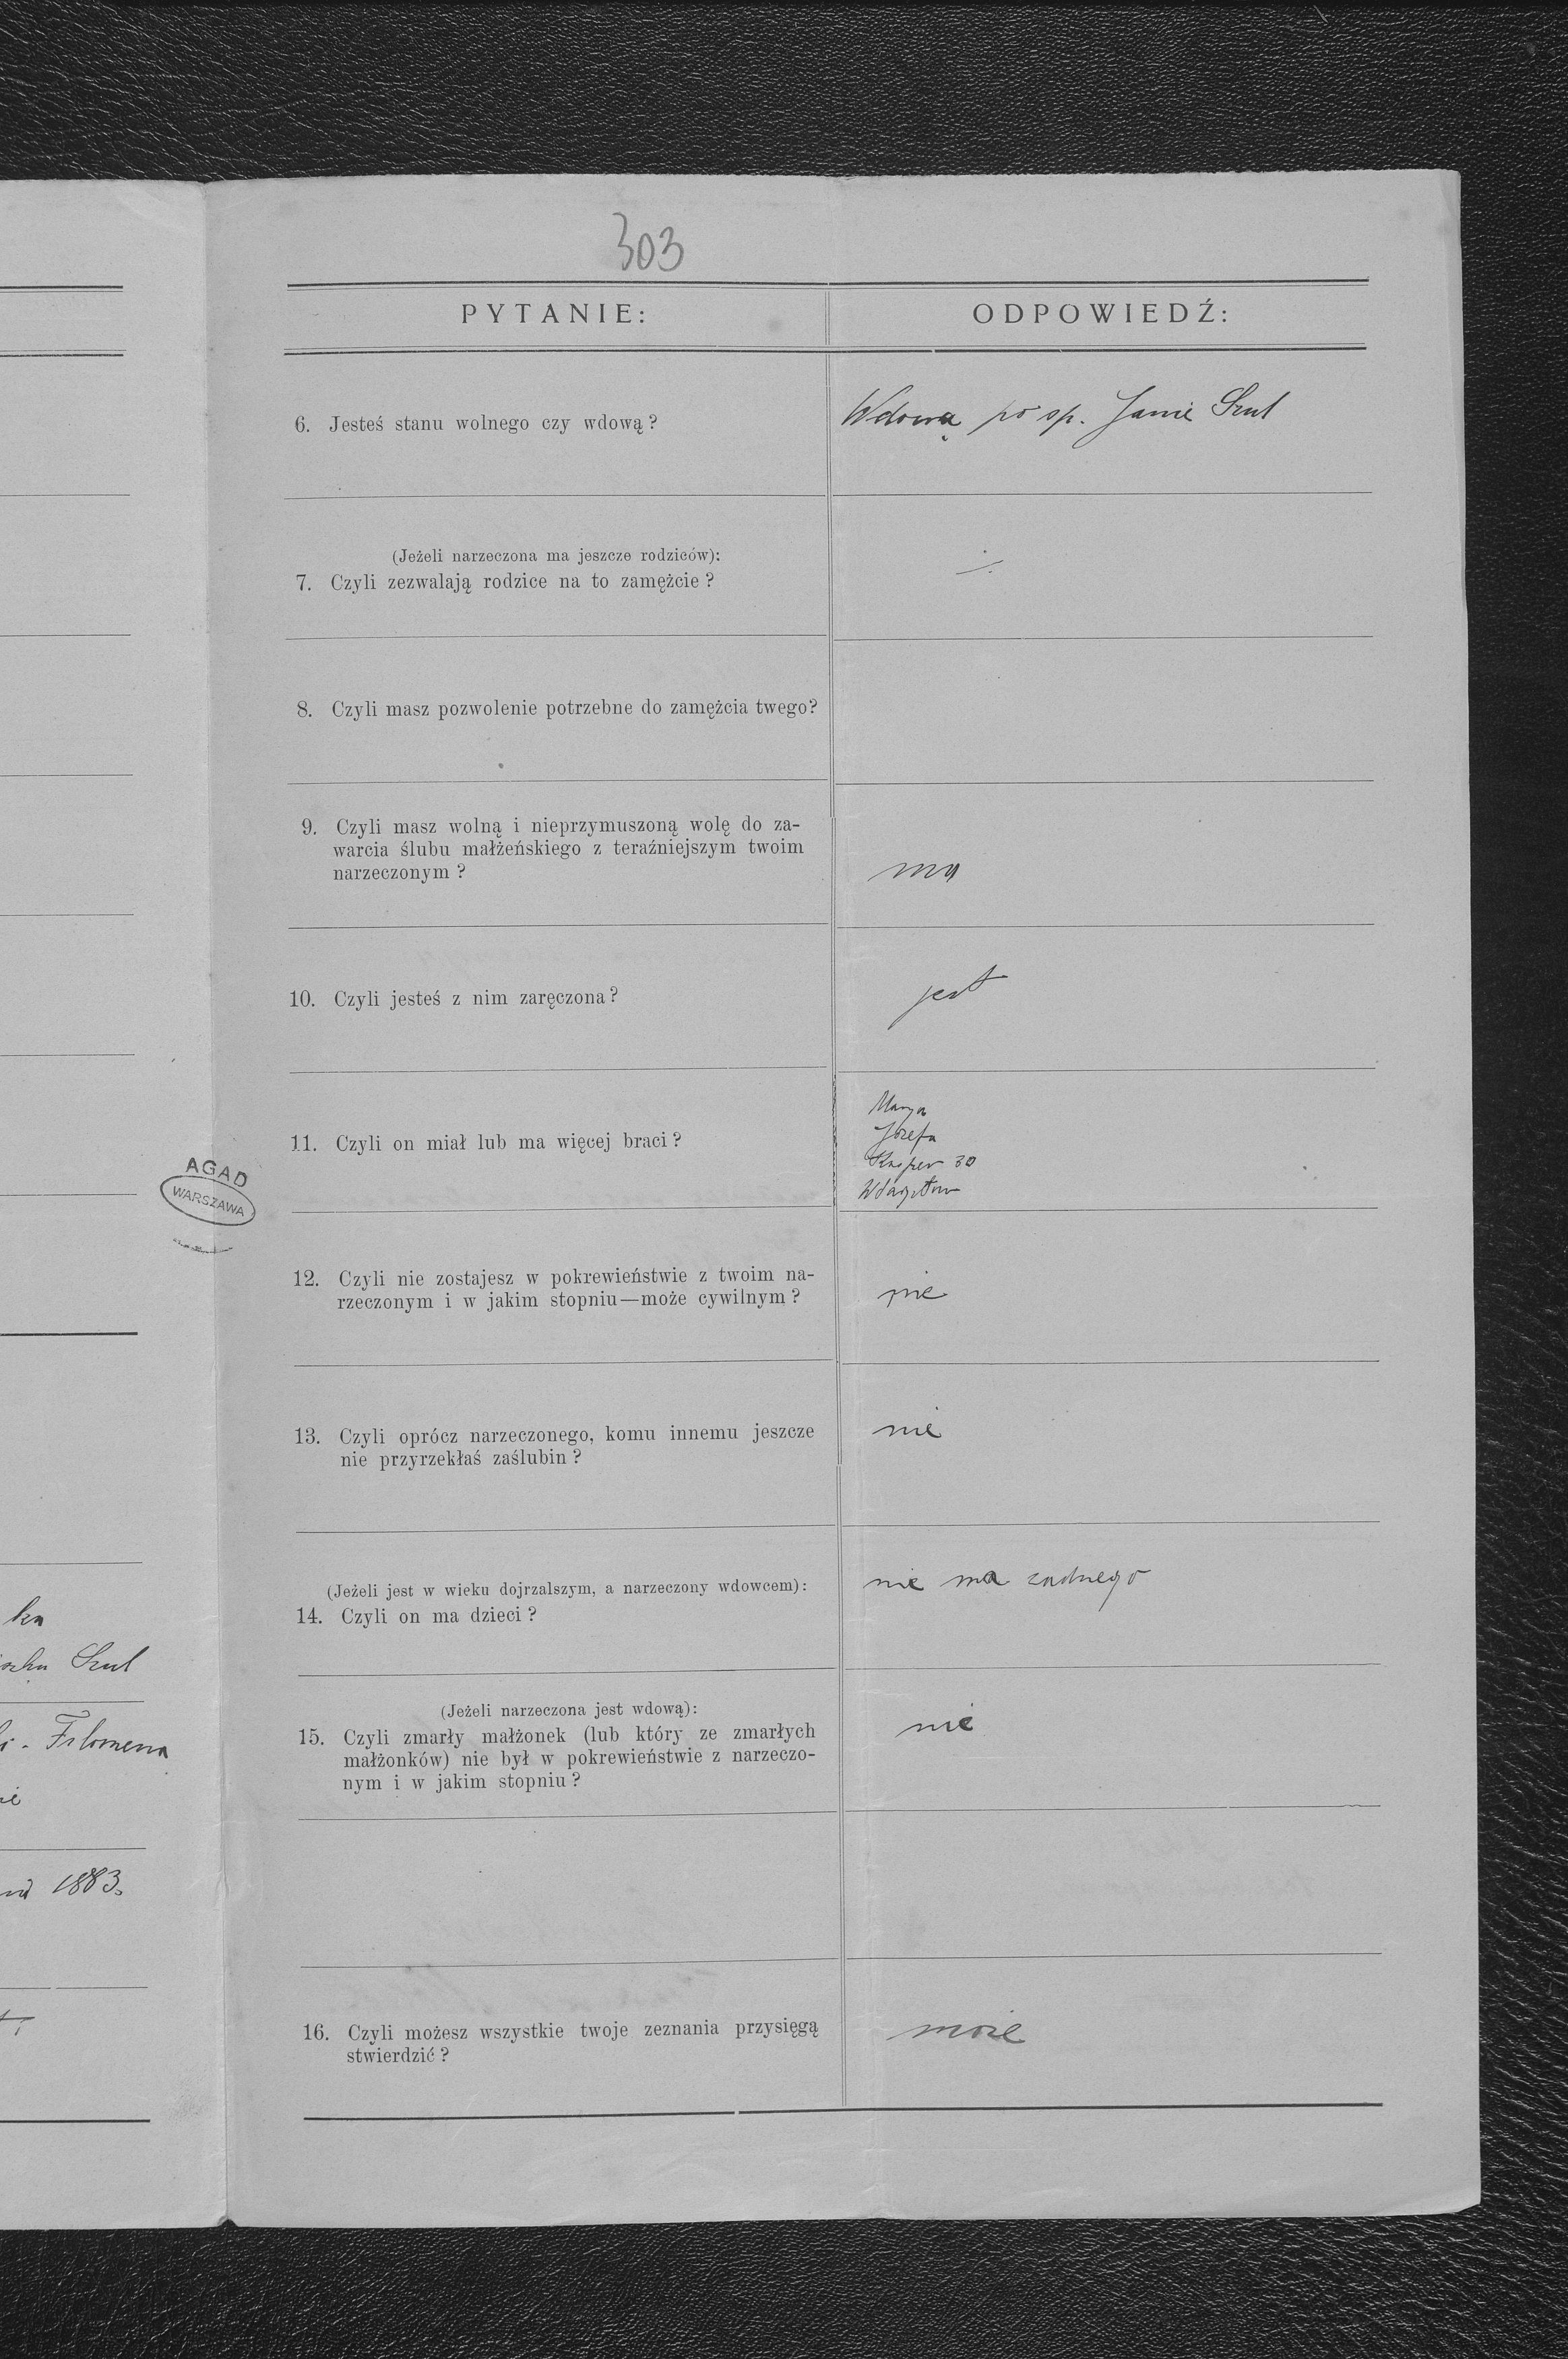 303
PYTANIE:
ODPOWIEDŹ:
6. Jesteś stanu wolnego czy wdową?
Wdową po sp. Janie Szul
(Jeżeli narzeczona ma jeszcze rodziców):
7. Czyli zezwalają rodzice na to zamężcie?
8. Czyli masz pozwolenie potrzebne do zamężcia twego?
9. Czyli masz wolną i nieprzymuszoną wolę do za-
warcia ślubu małżeńskiego z teraźniejszym twoim
narzeczonym?
ma
10. Czyli jesteś z nim zaręczona?
jest
11. Czyli on miał lub ma więcej braci?
Marya
Józefa
Kasper 30
AGAD
WARSZAWA
12. Czyli nie zostajesz w pokrewieństwie z twoim na-
rzeczonym i w jakim stopniu—może cywilnym?
nie
13. Czyli oprócz narzeczonego, komu innemu jeszcze
nie przyrzekłaś zaślubin?
nie
(Jeżeli jest w wieku dojrzalszym, a narzeczony wdowcem):
14. Czyli on ma dzieci?
nie ma żadnego
(Jeżeli narzeczona jest wdową):
15. Czyli zmarły małżonek (lub który ze zmarłych
małżonków) nie był w pokrewieństwie z narzeczo-
nym i w jakim stopniu?
nie
16. Czyli możesz wszystkie twoje zeznania przysięgą
stwierdzić?
może
ka
Szul
Filomena
1883.